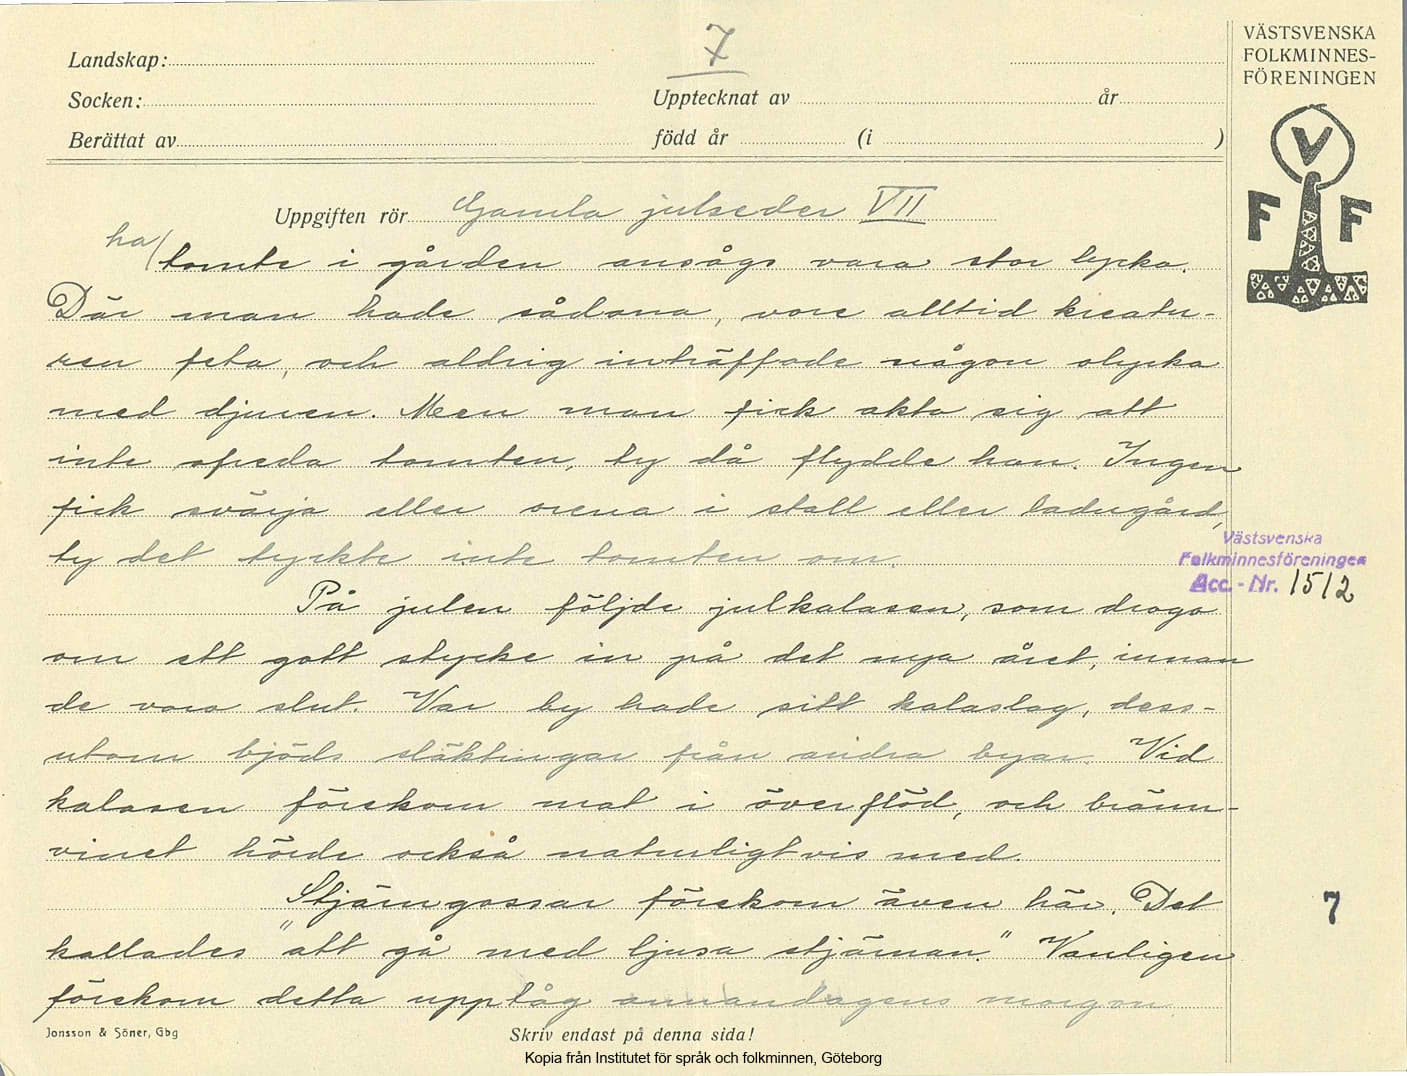 7
VÄSTSVENSKA
FOLKMINNES-
FÖRENINGEN
Landskap:
Socken:
Upptecknat av år
Berättat av född år (i )
V
F F
Uppgiften rör Gamla julseder VII
ha/tomte i gården ansågs vara stor lycka.
Där man hade sådana, vore alltid kreatu-
ren feta, och aldrig inträffade någon olycka
med djuren. Men man fick akta sig att
inte ofreda tomten, ty då flydde han. Ingen
fick svärja eller orena i stall eller ladugård,
ty det tyckte inte tomten om.
Västsvenska
Folkminnesföreningen
Acc.-Nr. 1512
På julen följde julkalasen, som drogo
om ett gott stycke in på det nya året, innan
de voro slut. Var by hade sitt kalaslag, dess-
utom bjöds släktingar från andra byar. Vid
kalasen förekom mat i överflöd, och bränn-
vinet hörde också naturligtvis med.
Stjärngossar förekom även här. Det
7
kallades "att gå med ljusa stjärnan." Vanligen
förekom detta upptåg annandagens morgon.
Jonsson & Söner, Gbg
Skriv endast på denna sida!
Kopia från Institutet för språk och folkminnen, Göteborg